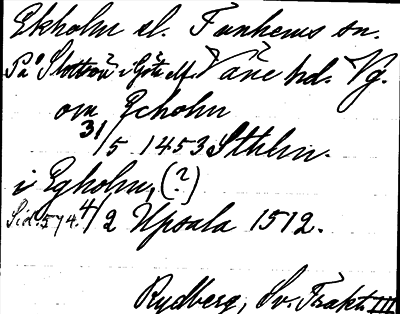 Ekholm el. Fanhems sn.
På Slottsön i Göta älf. Väne hd. Vg.
om Echolm
31/5 1453 Sthlm.
i Egholm, (?)
Sid. 574. 4/2 Upsala 1512.
Rydberg, Sv. Trakt. III